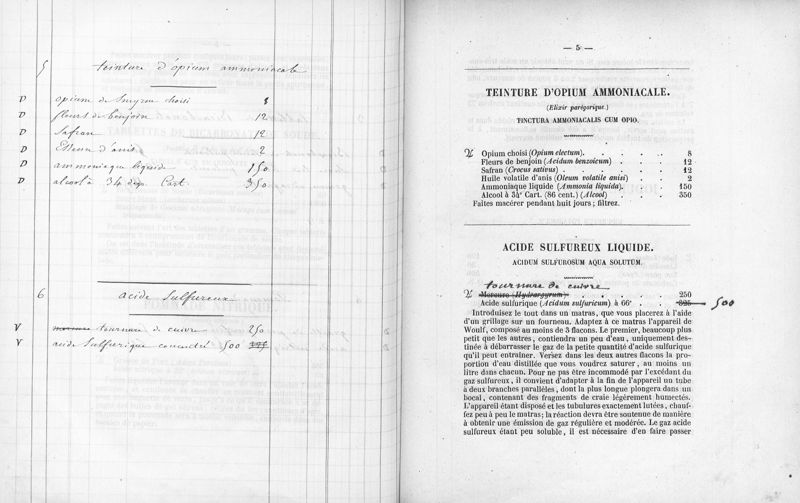 5 teinture d'opium ammoniacale
D opium de Smyrne choisi 8
D fleurs de benjoin 12
D Safran 12
D Essence d'anis 2
D ammoniaque liquide 150
D alcool à 34 deg. Cart. 350
6 acide Sulfureux
V mercure tournure de cuivre 250
V acide Sulfurique concentré 500 325
— 5 —
TEINTURE D'OPIUM AMMONIACALE.
(Elixir parégorique.)
TINCTURA AMMONIACALIS CUM OPIO.
Opium choisi (Opium electum). . . . . 8
Fleurs de benjoin (Acidum benzoicum) . . . . 12
Safran (Crocus sativus) . . . . . . 12
Huile volatile d'anis (Oleum volatile anisi) . . . 2
Ammoniaque liquide (Ammonia liquida). . . . 150
Alcool à 34° Cart. (86 cent.) (Alcool) . . . 350
Faites macérer pendant huit jours ; filtrez.
ACIDE SULFUREUX LIQUIDE.
ACIDUM SULFUROSUM AQUA SOLUTUM.
tournure de cuivre
Mercure (Hydrargyrum) . . . . . . 250
Acide sulfurique (Acidum sulfuricum) à 66°. . . . 325 500
Introduisez le tout dans un matras, que vous placerez à l'aide
d'un grillage sur un fourneau. Adaptez à ce matras l'appareil de
Woulf, composé au moins de 3 flacons. Le premier, beaucoup plus
petit que les autres, contiendra un peu d'eau, uniquement des-
tinée à débarrasser le gaz de la petite quantité d'acide sulfurique
qu'il peut entraîner. Versez dans les deux autres flacons la pro-
portion d'eau distillée que vous voudrez saturer, au moins un
litre dans chacun. Pour ne pas être incommodé par l'excédant du
gaz sulfureux, il convient d'adapter à la fin de l'appareil un tube
à deux branches parallèles, dont la plus longue plongera dans un
bocal, contenant des fragments de craie légèrement humectés.
L'appareil étant disposé et les tubulures exactement lutées, chauf-
fez peu à peu le matras; la réaction devra être soutenue de manière
à obtenir une émission de gaz régulière et modérée. Le gaz acide
sulfureux étant peu soluble, il est nécessaire d'en faire passer